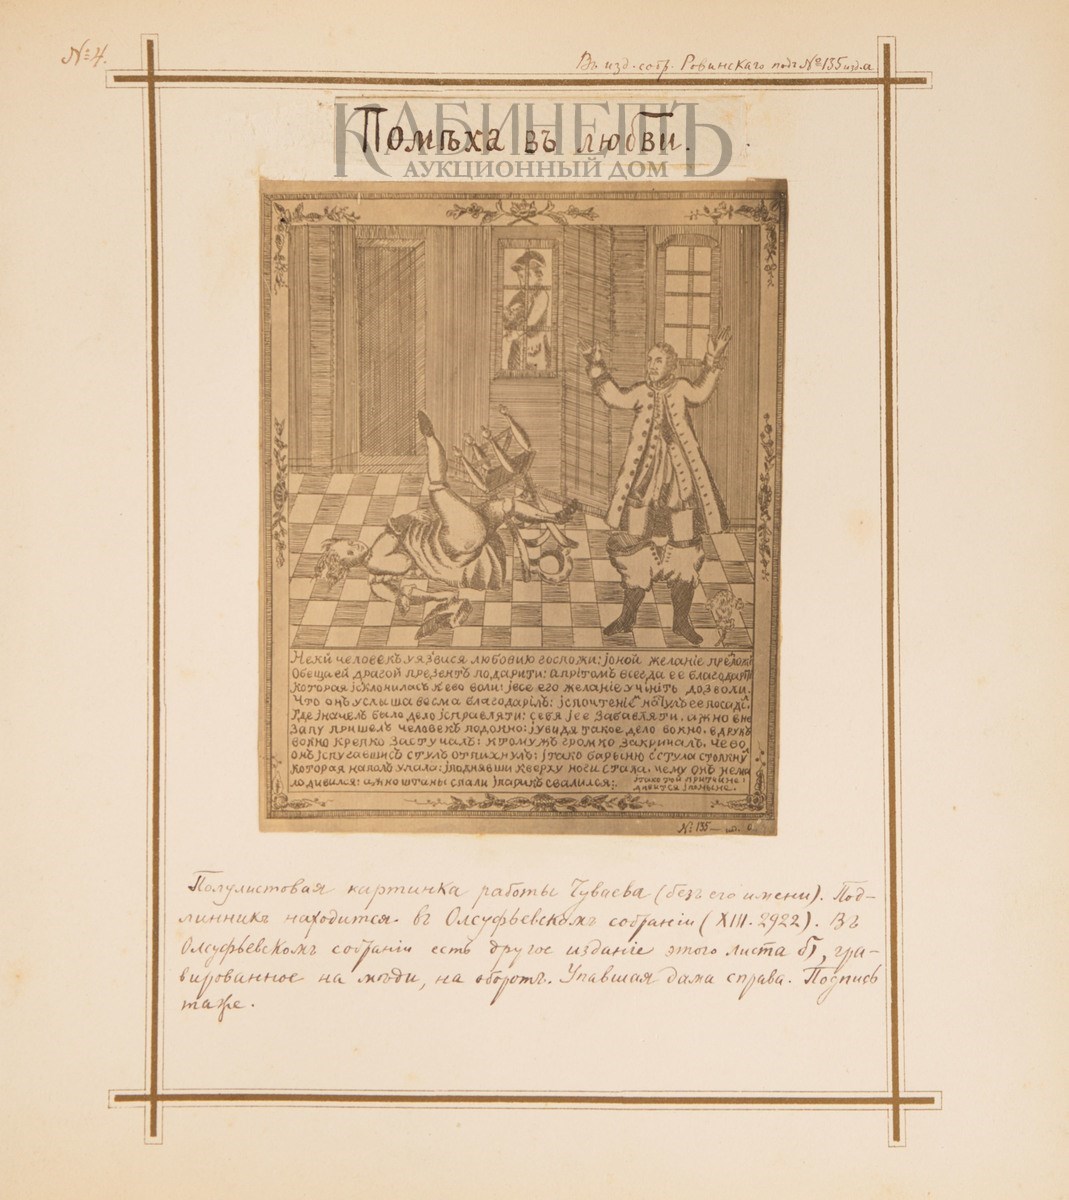 № 4.
Въ изд. собр. Ровинскаго подъ № 135 изд. а
КАБИНЕТЪ
АУКЦИОННЫЙ ДОМ
Помѣха въ любви.
Некй человекъ уязвися любовию госпожи: јоной желанiе предложи
Обещаей драгой презентъ подарити: апрiтомъ всегда ее благодарти
Которая јсклонилась кево воли: јвсе его желанiе учiнiть дозволи.
Что онъ услыша восма благодарiлъ: јспочтенiе на стулъ ее посадi
Где јначел было дело јсправляти: себя јее забавляти, ажно вне
Запу пришелъ человекъ подокно: јувидя такое дело вокно. вдругъ
вокно крепко застучалъ: ктомужъ громко закричалъ, чево
онъ јспугавшись стулъ отпихнулъ: јтако барыню стула столкнул
которая напалъ упала: јподнявши кверху ноги стала, чему онъ нема
ло дивился: ажно штаны спали јпарикъ свалился:
такотой притчине:
дивится јпоныне.
№ 135
Полулистовая картинка работы Чуваева (безъ его имени). Под-
линникъ находится въ Олсуфьевскомъ собранiи (XIII. 2922). Въ
Олсуфьевскомъ собранiи есть другое изданiе этого листа б), гра-
вированное на мѣди, на оборотъ. Упавшая дама справа. Подпись
таже.